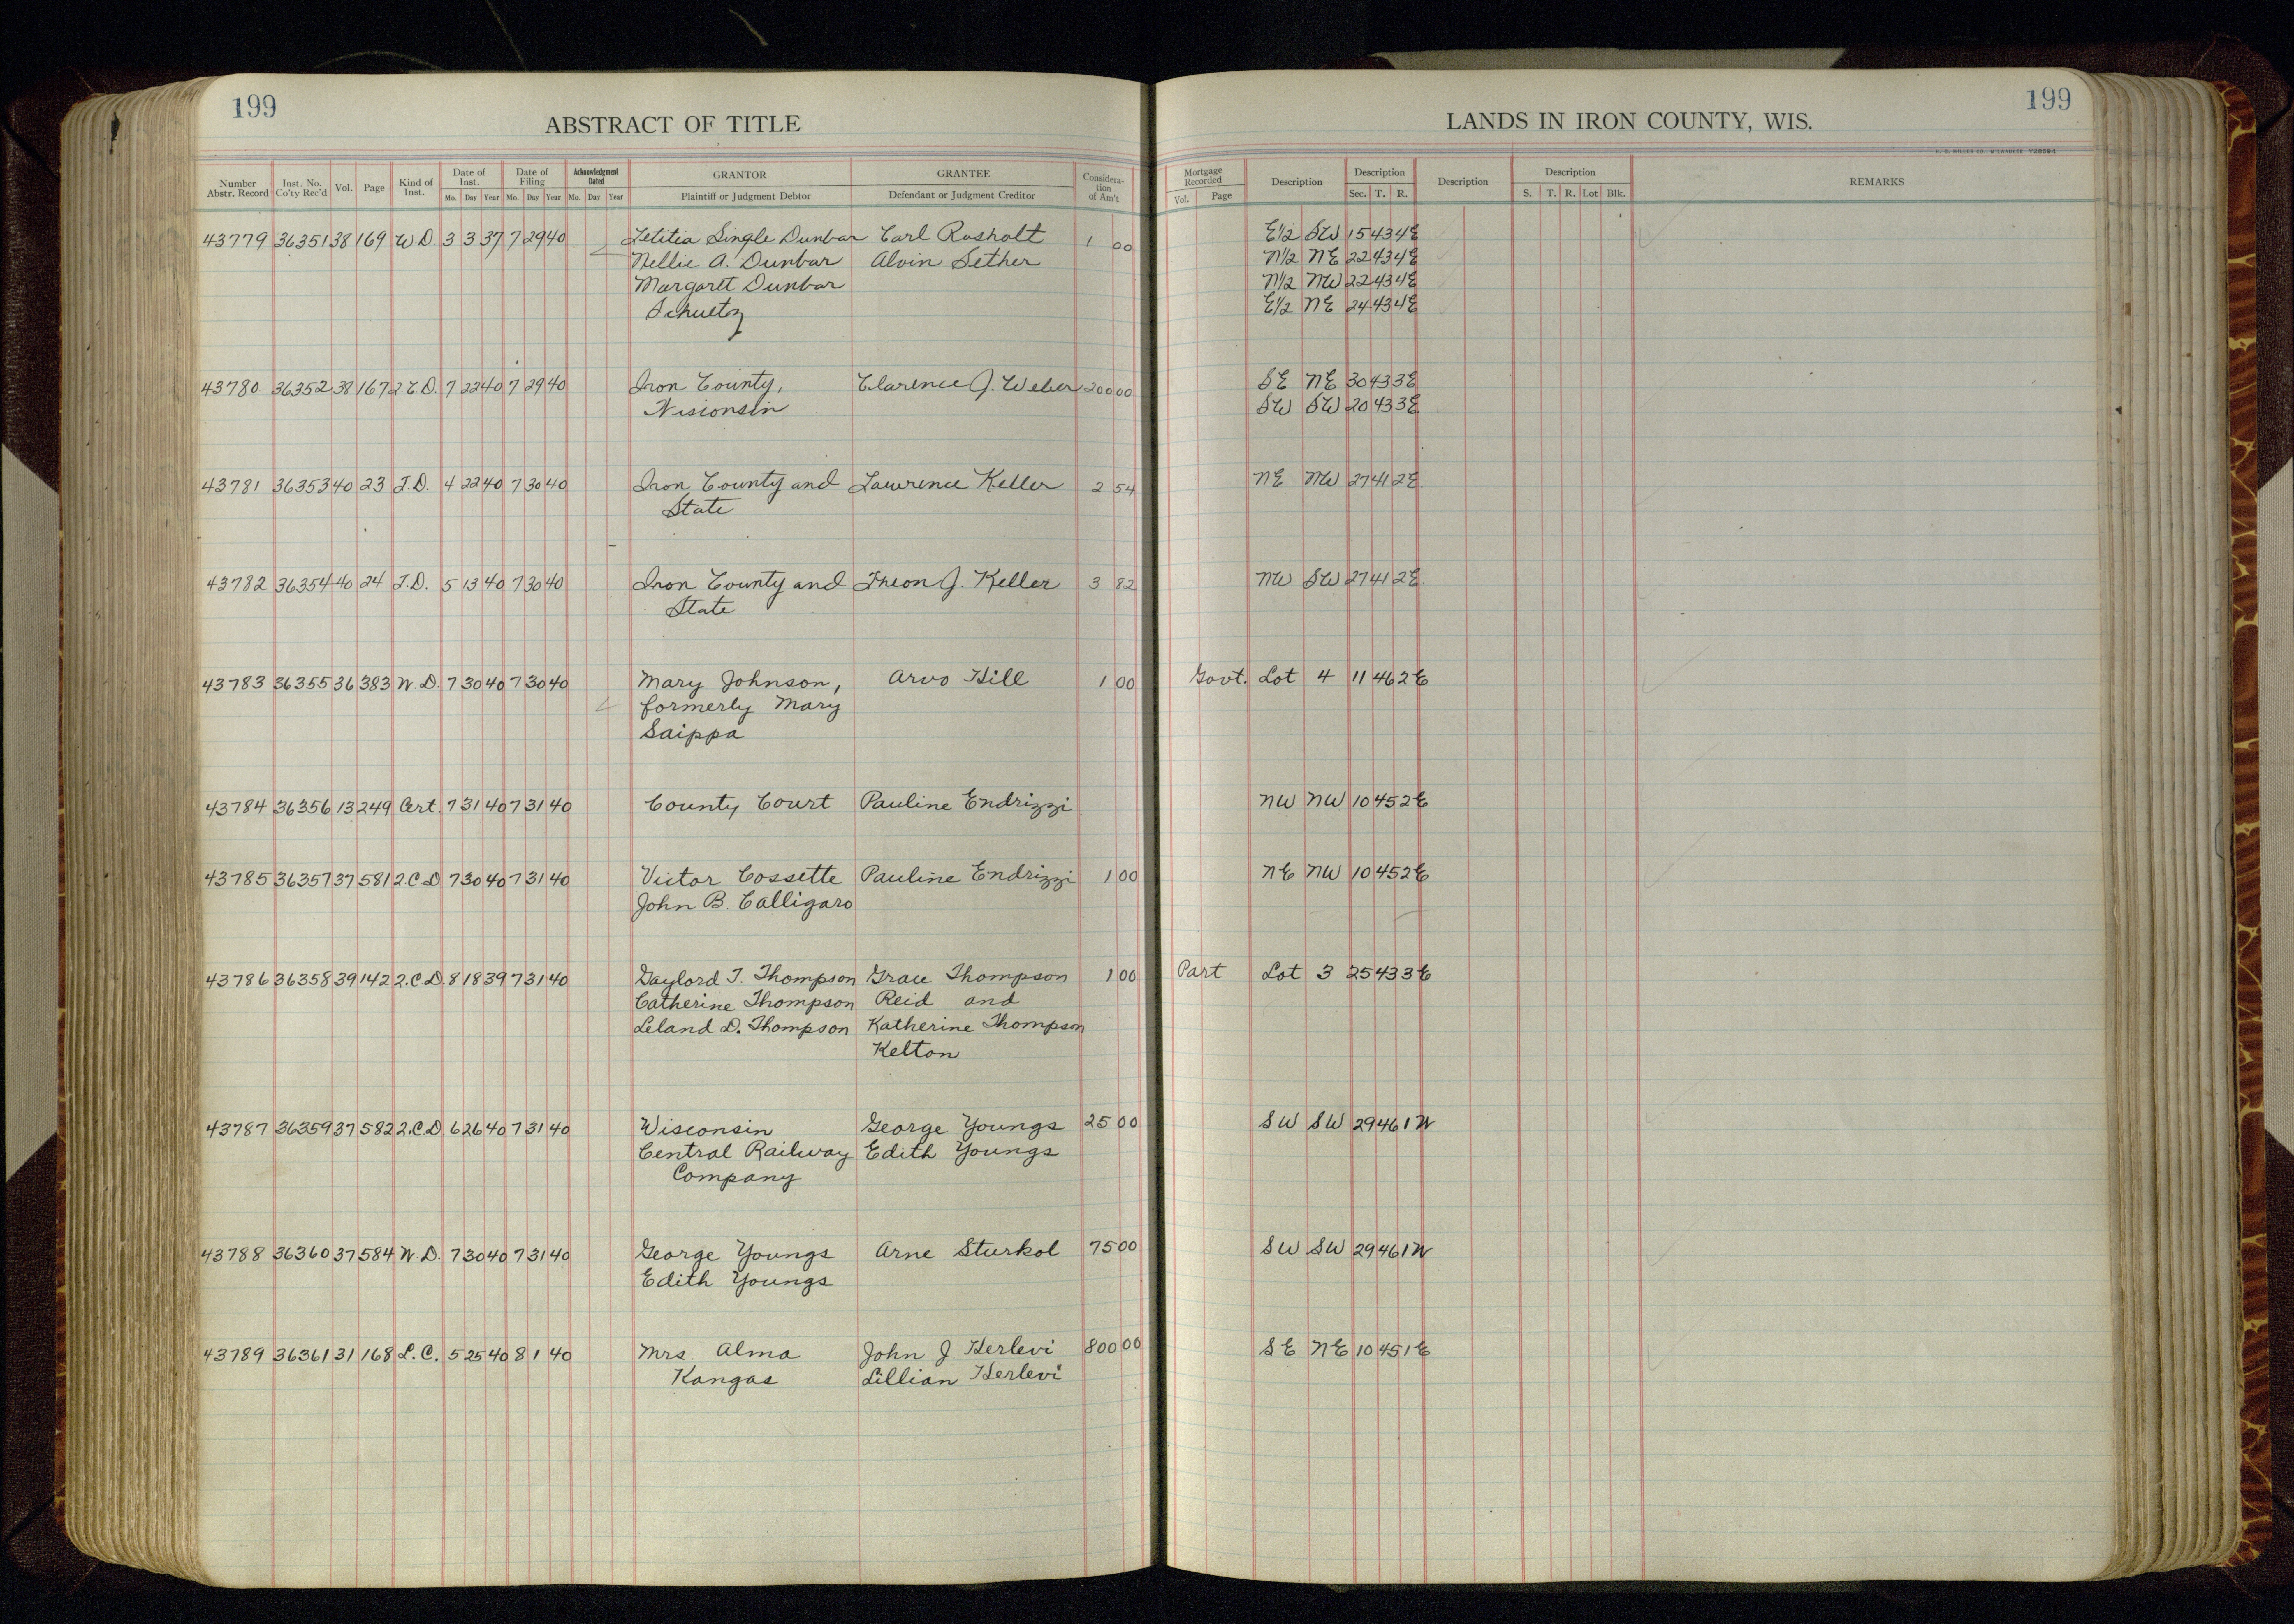 199
ABSTRACT OF TITLE
Number Abstr. Record | Inst. No. Co'ty Rec'd | Vol. | Page | Kind of Inst. | Date of Inst. Mo. Day Year | Date of Filing Mo. Day Year | Acknowledgment Dated Mo. Day Year | GRANTOR Plaintiff or Judgment Debtor | GRANTEE Defendant or Judgment Creditor | Considera-tion of Am't
LANDS IN IRON COUNTY, WIS.
199
H. C. MILLER CO., MILWAUKEE Y28594
Mortgage Recorded Vol. Page | Description | Description Sec. T. R. | Description | Description S. T. R. Lot Blk. | REMARKS
43779 36351 38 169 W.D. 3 3 37 7 29 40 Letitia Single Dunbar Carl Rosholt 1 00 E1/2 SW 15 43 4E
Nellie A. Dunbar Alvin Sether N1/2 NE 22 43 4E
Margaret Dunbar N1/2 NW 22 43 4E
Schultz E1/2 NE 24 43 4E
43780 36352 38 167 2.C.D. 7 22 40 7 29 40 Iron County, Clarence J. Weber 200 00 SE NE 30 43 3E
Wisconsin SW SW 20 43 3E
43781 36353 40 23 T.D. 4 22 40 7 30 40 Iron County and Lawrence Keller 2 54 NE NW 27 41 2E.
State
43782 36354 40 24 T.D. 5 13 40 7 30 40 Iron County and Theon J. Keller 3 82 NW SW 27 41 2E.
State
43783 36355 36 383 W.D. 7 30 40 7 30 40 Mary Johnson, Arvo Hill 1 00 Govt. Lot 4 11 46 2E
formerly Mary
Saippa
43784 36356 13 249 Cert. 7 31 40 7 31 40 County Court Pauline Endrizzi NW NW 10 45 2E
43785 36357 37 581 2.C.D 7 30 40 7 31 40 Victor Cossette Pauline Endrizzi 1 00 NE NW 10 45 2E
John B. Calligaro
43786 36358 39 142 2.C.D. 8 18 39 7 31 40 Gaylord T. Thompson Grace Thompson 1 00 Part Lot 3 25 43 3E
Catherine Thompson Reid and
Leland D. Thompson Katherine Thompson
Kelton
43787 36359 37 582 2.C.D 6 26 40 7 31 40 Wisconsin George Youngs 25 00 SW SW 29 46 1W
Central Railway Edith Youngs
Company
43788 36360 37 584 W.D. 7 30 40 7 31 40 George Youngs Arne Sturkol 75 00 SW SW 29 46 1W
Edith Youngs
43789 36361 31 168 L.C. 5 25 40 8 1 40 Mrs. Alma John J. Herlevi 800 00 SE NE 10 45 1E
Kangas Lillian Herlevi